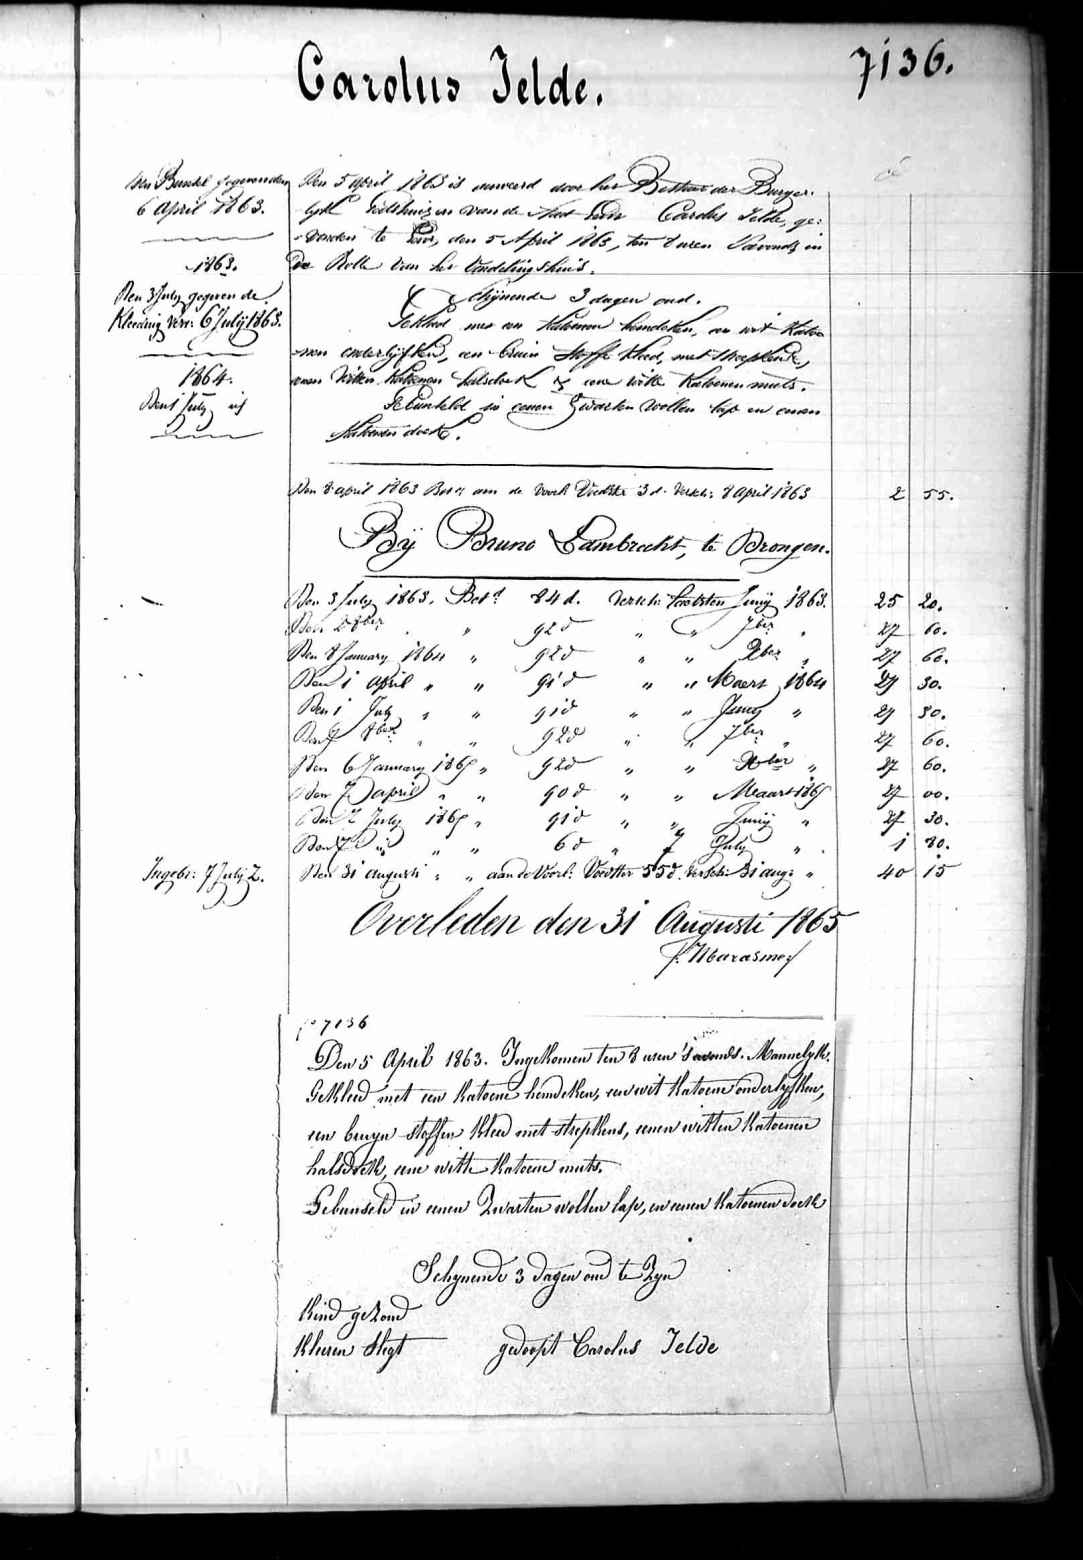 Carolus Jelde.
7136.
Den Bundel gegevenden
6 April 1863.
1863.
Den 3 July gegeven de
Kleeding verv: 6 July 1863.
1864.
Den 1 July id
Den 5 april 1863 is aenveerd door het Bestuur der Burger-
lyke Godshuizen van de Stad Gend Carolus Jelde, ge-
-vonden te Gend, den 5 April 1863, ten 8 uren 's avonds in
De Rolle van het Vondelingshuis.
Schijnende 3 dagen oud.
Gekleed met een Katoenen hemdeken, een wit Katoe-
-nen onderlyfken, een bruin Stoffe Kleed, met streepkens,
eenen witten Katoenen halsdoek & eene witte Katoenen muts.
Gebunseld in eenen Zwarten wollen lap en eenen
Katoenen doek.
Den 8 april 1863 Bet. aen de voorl. Voedster 3 d. versch: 8 April 1863 2 55.
Bÿ Bruno Lambrecht, te Drongen.
Den 3 July 1863. Bet. 84 d. versch: laetsten Junÿ 1863. 25 20.
Den 2 8ber " 92 d " " 7ber " 27 60.
Den 8 January 1864 " 92 d " " Xber " 27 60.
Den 1 April " " 91 d " " Maert 1864 27 30.
Den 1 July " " 91 d " " Juny " 27 30.
Den 7 8ber " " 92 d " " 7ber " 27 60.
Den 6 January 1865 " 92 d " " Xber " 27 60.
Den 7 april " " 90 d " " Maart 1865 27 00.
Den 7 July 1865 " 91 d " " Junÿ " 27 30.
Den 7 id " " 6 d " 7 July " 1 80.
Ingebr: 7 July Z.
Den 31 augusti " " aan de Voorl: Voedster 55 d. versch: 31 aug: " 40 15
Overleden den 31 Augusti 1865
f. Marasme
f° 7136
Den 5 April 1863. Ingekomen ten 8 uren 's avonds. Mannelyk.
Gekleed met een katoene hemdeken, een wit katoene onderlyfken,
een bruyn stoffen kleed met strepkens, eenen witten katoenen
halsdoek, eene witte katoene muts.
Gebunseld in eenen Zwarten wollen lap, en eenen katoenen doek
Schynende 3 dagen oud te Zyn
Kind gezond
Kleeren slegt
gedoopt Carolus Jelde